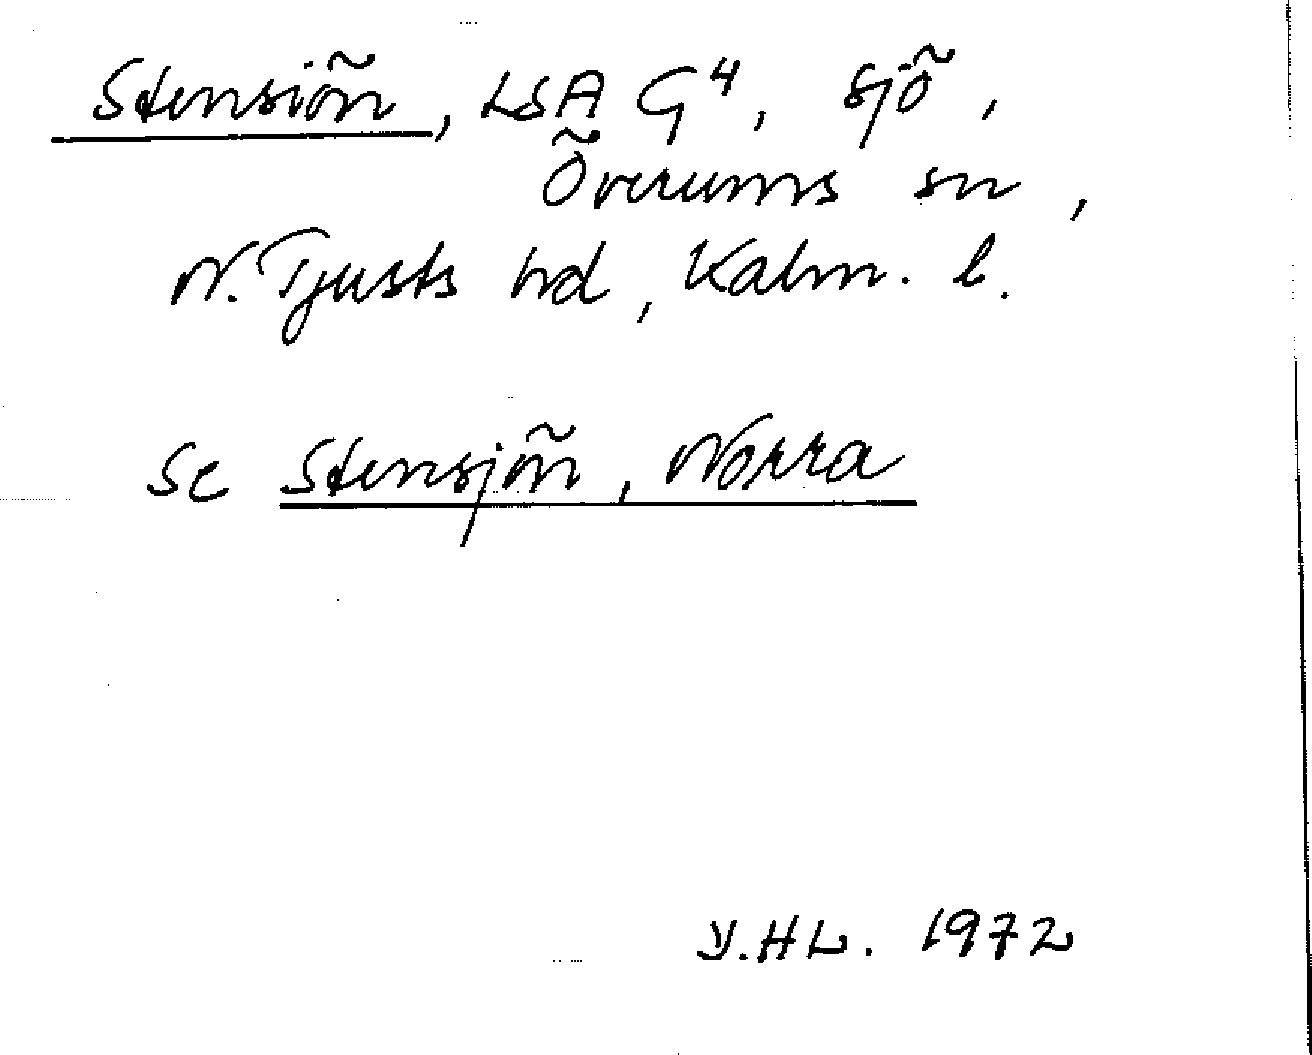 Stensiön, LSA G⁴, sjö,
Överums sn,
N. Tjusts hd, Kalm. l.
se Stensjön, Norra
Y.HL. 1972